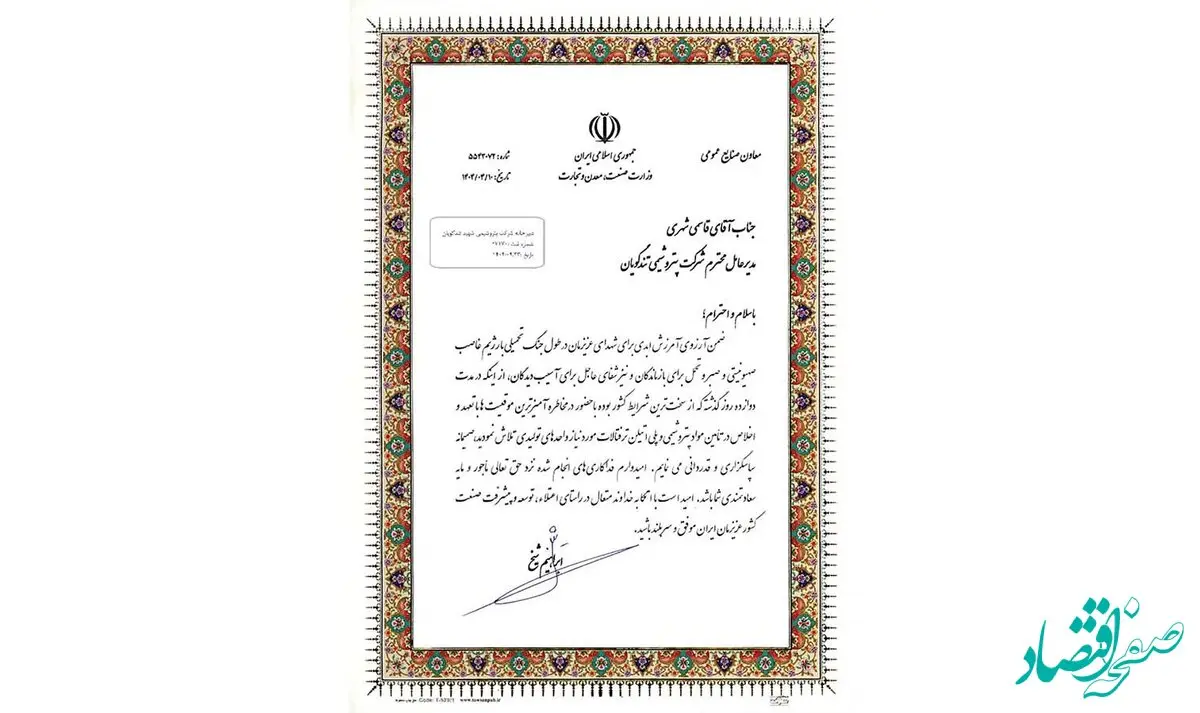 معاون صنایع عمومی
جمهوری اسلامی ایران
وزارت صنعت، معدن و تجارت
شماره: ۵۵۴۳۰۷۲
تاریخ: ۱۴۰۴/۰۴/۱۰
دبیرخانه شرکت پتروشیمی شهید تندگویان
شماره ثبت :
تاریخ :
جناب آقای قاسمی شهری
مدیرعامل محترم شرکت پتروشیمی تندگویان
باسلام و احترام؛
ضمن آرزوی آمرزش ابدی برای شهدای عزیزمان در طول جنگ تحمیلی با رژیم غاصب
صهیونیتی و صبر و تحمل برای بازماندگان و نیز شفای عاجل برای آسیب دیدگان، از اینکه در مدت
دوازده روز گذشته که از سخت‌ترین شرایط کشور بوده با حضور در مخاطره آمیزترین موقعیت ها با تعهد و
اخلاص در تأمین مواد پتروشیمی و پلی اتیلن ترفتالات مورد نیاز واحدهای تولیدی تلاش نمودید، صمیمانه
سپاسگزاری و قدردانی می نمایم. امیدوارم فداکاری‌های انجام شده نزد حق تعالی مأجور و مایه
سعادتمندی شما باشد. امید است با اتکا به خداوند متعال در راستای اعتلاء، توسعه و پیشرفت صنعت
کشور عزیزمان ایران موفق و سربلند باشید.
ابراهیم شیخ
www.tawsanpub.ir
صفحه اقتصاد